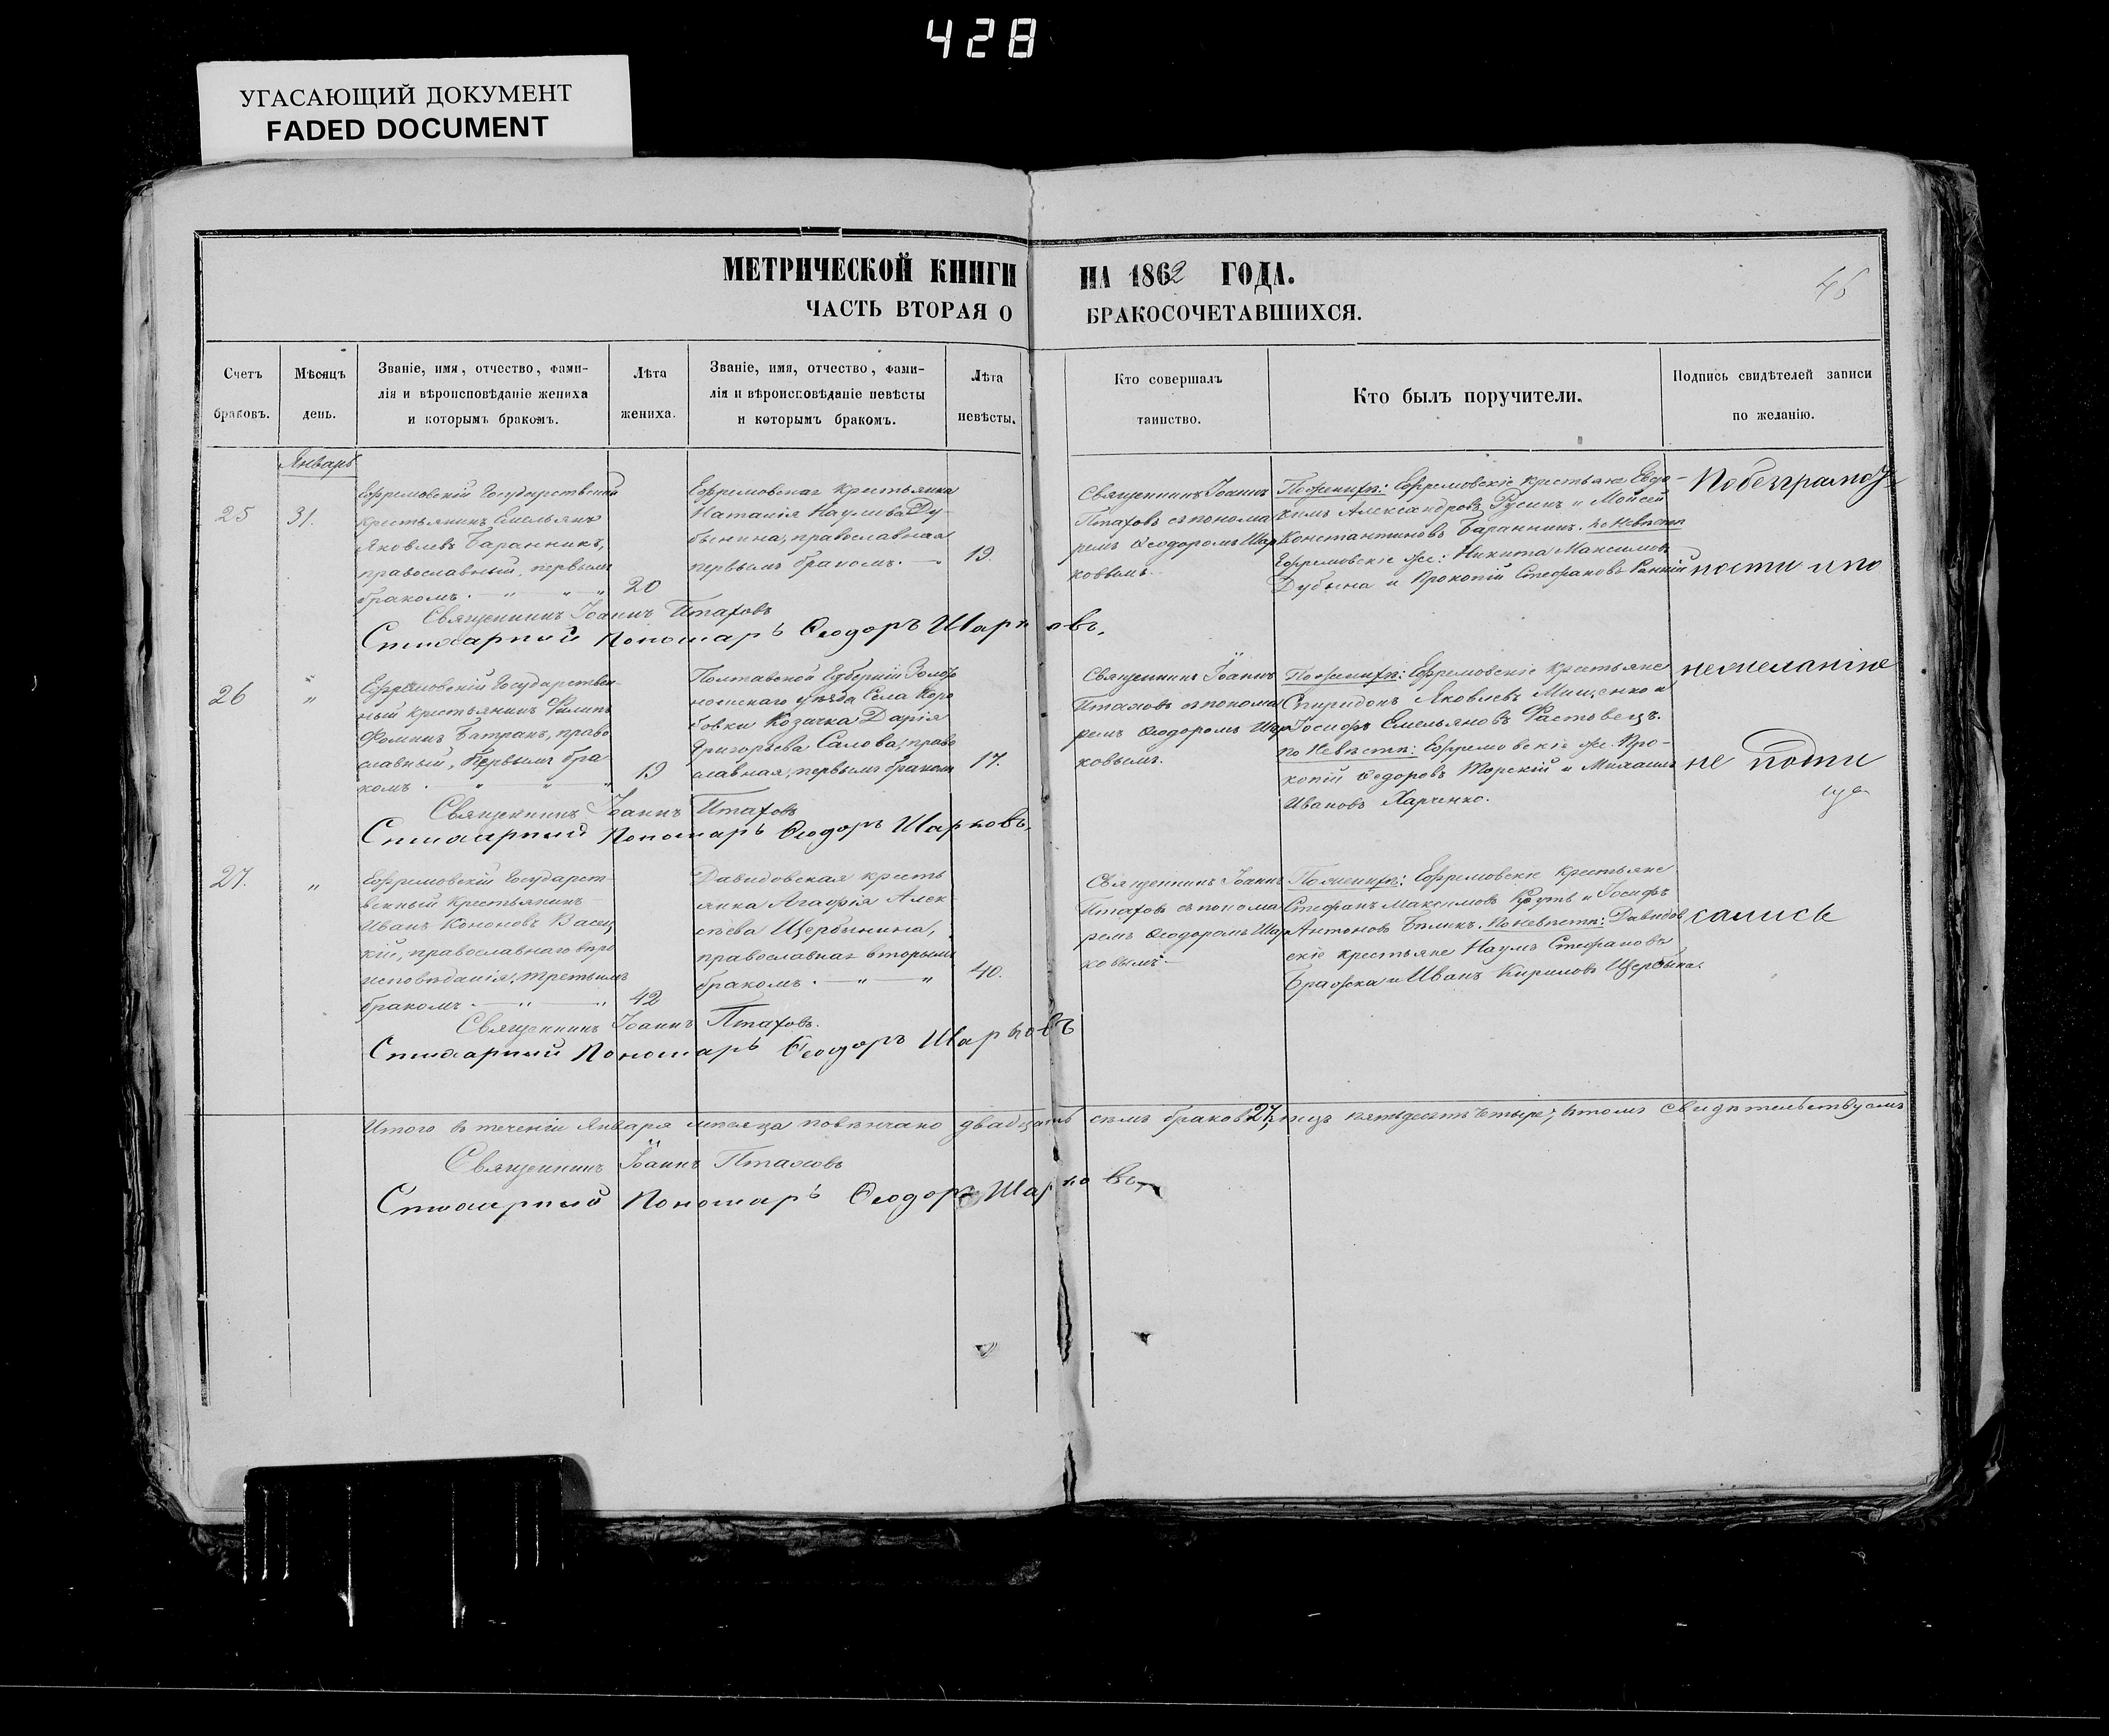 428
УГАСАЮЩИЙ ДОКУМЕНТ
FADED DOCUMENT
МЕТРИЧЕСКОЙ КНИГИ НА 1862 ГОДА.
ЧАСТЬ ВТОРАЯ О БРАКОСОЧЕТАВШИХСЯ.
Счетъ
браковъ.
Мѣсяцъ
день.
Званіе, имя, отчество, фами-
лія и вѣроисповѣданіе жениха
и которымъ бракомъ.
Лѣта
жениха.
Званіе, имя, отчество, фами-
лія и вѣроисповѣданіе невѣсты
и которымъ бракомъ.
Лѣта
невѣсты.
Кто совершалъ
таинство.
Кто былъ поручители.
Подпись свидѣтелей записи
по желанію.
Январь
25
31.
Ефремовскій Государственный
крестьянинъ Емельянъ
Яковлевъ Баранникъ,
православный, первымъ
бракомъ.
20
Ефремовская крестьянка
Наталія Наумова Ду-
бынина, православная
первымъ бракомъ.
19.
Священникъ Іоаннъ
Птаховъ съ понома
ремъ Ѳеодоромъ Шар
ковымъ.
По женихѣ: Ефремовскіе крестьяне Евдо-
кимъ Александровъ Русинъ и Мойсей
Константиновъ Баранникъ. по невѣстѣ
Ефремовскіе же: Никита Максимовъ
Дубына и Прокопій Стефановъ
По безграмот
ности и по
Священникъ Іоаннъ Птаховъ
Стихарный Пономарь Ѳеодоръ Шарковъ.
26
"
Ефремовскій Государствен-
ный крестьянинъ Филипъ
Фоминъ Батранъ, право
славный, Первымъ бра
комъ.
19
Полтавской Губерніи Золото
ношскаго уѣзда Села Коро
бовки Козачка Дарія
Григорьева Салова, право
славная, первымъ бракомъ
17.
Священникъ Іоаннъ
Птаховъ съ понома
ремъ Ѳеодоромъ Шар
ковымъ.
По женихѣ: Ефремовскіе крестьяне
Спиридонъ Яковлевъ Мищенко и
Іосифъ Емельяновъ Фастовецъ.
По Невѣстѣ: Ефремовскіе же: Про-
копій Ѳедоровъ Торскій и Михаилъ
Ивановъ Харченко.
нежеланію
не подпи
Священникъ Іоаннъ Птаховъ
Стихарный Пономарь Ѳеодоръ Шарковъ.
27.
"
Ефремовскій Государст-
венный крестьянинъ
Иванъ Кононовъ Васец
кій, православнаго вѣро
исповѣданія, третьимъ
бракомъ.
42
Давидовская кресть
янка Агафія Алек
сѣева Щербынина,
православная вторымъ
бракомъ.
40.
Священникъ Іоаннъ
Птаховъ съ понома
ремъ Ѳеодоромъ Шар
ковымъ.
По женихѣ: Ефремовскіе крестьяне
Стефанъ Максимовъ Круть и Іосифъ
Антоновъ Бѣликъ. По невѣстѣ: Давидов
скіе крестьяне Наумъ Стефановъ
Бражка и Иванъ Кириловъ Щербына.
сались
Священникъ Іоаннъ Птаховъ.
Стихарный Пономарь Ѳеодоръ Шарковъ
Итого въ теченіи Января мѣсяца повѣнчано двадцать семъ браковъ 27, лицъ пятьдесятъ четыре; въ томъ свидѣтельствуемъ
Священникъ Іоаннъ Птаховъ
Стихарный Пономарь Ѳеодоръ Шарковъ